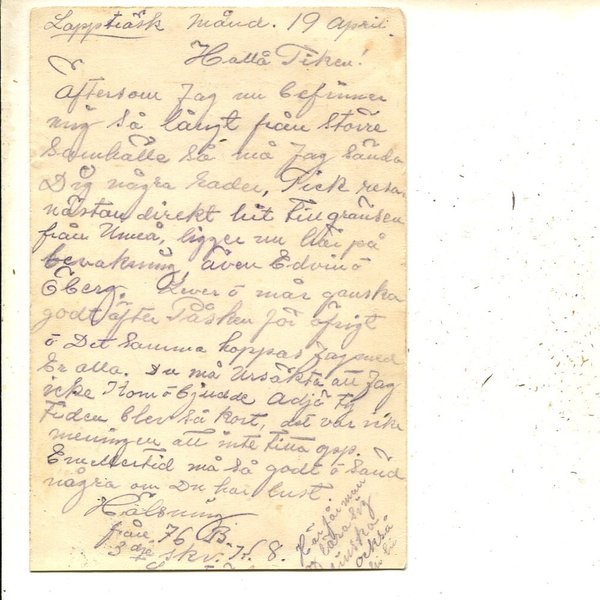 Lappträsk Månd. 19 April.
Hallå Tiken!
Äftersom Jag nu befinner
mig så långt från större
Samhälle så må Jag sända
Dig några rader, Fick resa
nästan direkt hit till gränsen
från Umeå, ligger nu här på
bevakning, även Edvin ö
Öberg. Lever ö mår ganska
godt äfter Påsken för öfrigt
ö Det Samma hoppas Jag med
Er alla. Du må Ursäkta att Jag
icke Kom ö bjudde Adjö ty
Tiden blev så kort, det var icke
meningen att inte titta opp.
Emellertid må så godt ö Sänd
några om Du har lust.
Hälsning
från 76 B.
3dje skv. K. 8.
Här får man
lära sig
finska
också